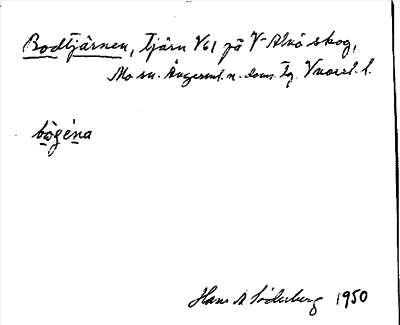 Bodtjärnen, tjärn V61 på V-Alnö skog,
Mo sn. Ångerml. n. doms. tg. Vnorrl. l.
bògéna
Hans A Söderberg 1950